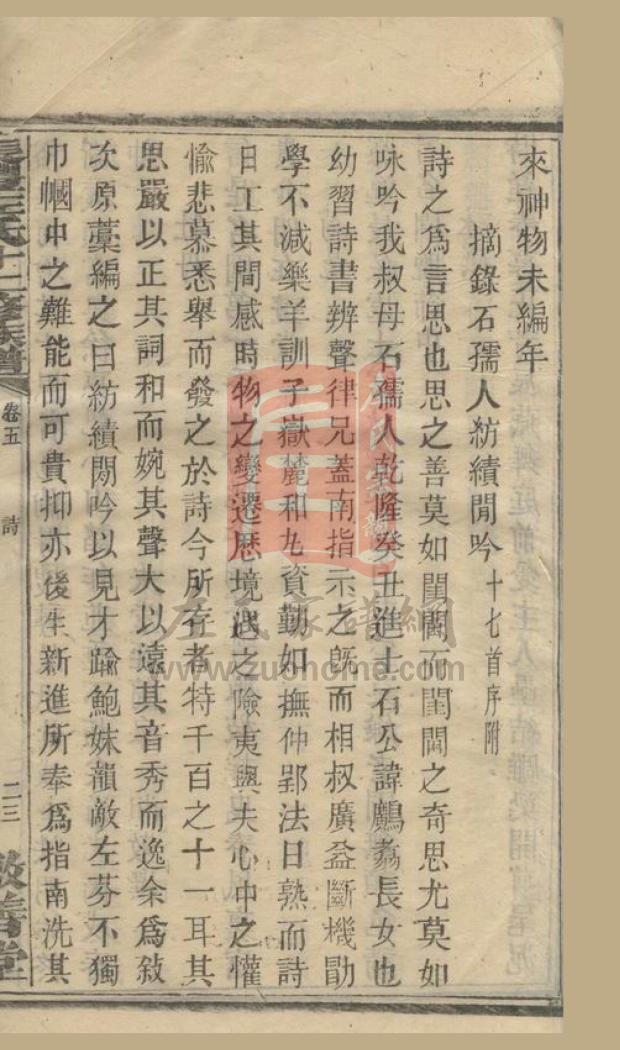 來神物未編年
摘錄石孺人紡績閒吟十七首序附
詩之爲言思也思之善莫如閨閫而閨閫之奇思尤莫如
咏吟我叔母石孺人乾隆癸丑進士石公諱鸕翥長女也
幼習詩書辨聲律兄蓋南指示之旣而相叔廣益斷機勖
學不減樂羊訓子嶽麓和丸資勤如撫仲郢法日熟而詩
日工其間感時物之變遷歷境遇之險夷與夫心中之懽
愉悲慕悉舉而發之於詩今所存者特千百之十一耳其
思嚴以正其詞和而婉其聲大以遠其音秀而逸余爲敍
次原藁編之曰紡績閒吟以見才踰鮑妹韻敵左芬不獨
巾幗中之難能而可貴抑亦後生新進所奉爲指南洗其
左氏十二修族譜
卷五
詩
二三
敦善堂
左氏家譜網
www.zuohome.com